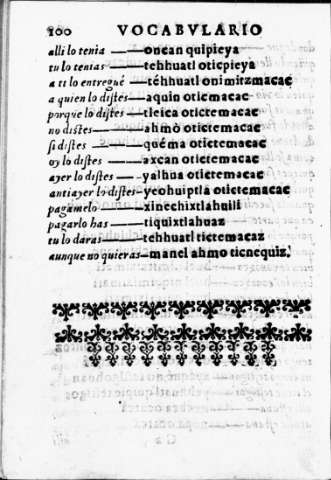 100 VOCABVLARIO
alli lo tenia —— oncan quipieya
tu lo tenias —— tehhuatl oticpieya
a ti lo entregué —— téhhuatl onimitzmacac
a quien lo distes — aquin oticmacac
porque lo distes — tleica oticmacac
no distes —— ahmò otictemacac
si distes —— quéma otictemacac
oy lo distes —— axcan otictemacac
ayer lo distes — yalhua otictemacac
antiayer lo distes — yeohuiptla otictemacac
pagamelo —— xinechixtlahuili
pagarlo has —— tiquixtlahuaz
tu lo daras —— tehhuatl tictemacaz
aunque no quieras — manel ahmo ticnequiz.